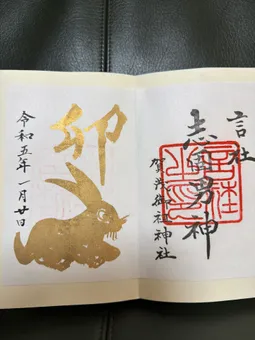 言社
志固男神
賀茂御祖神社
言社之印
卯
令和五年一月廿日